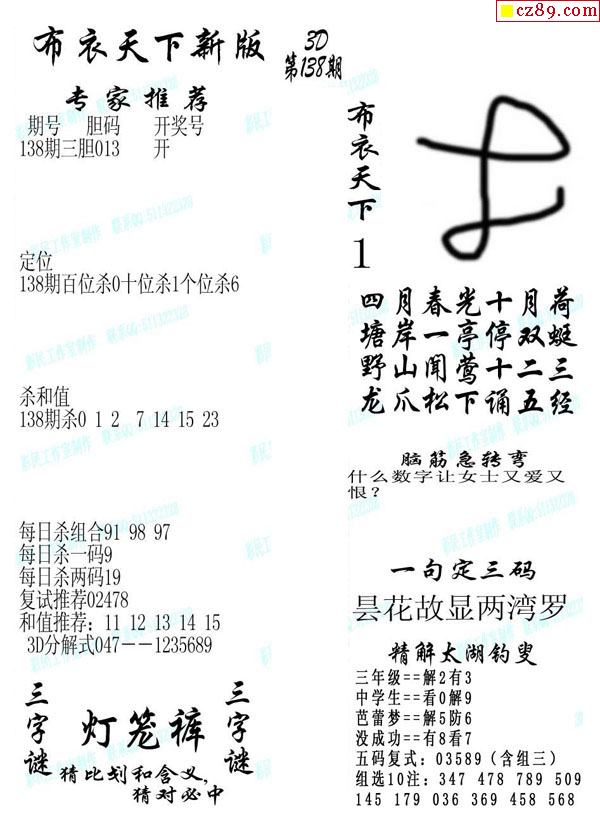 cz89.com
布衣天下新版
3D
第138期
专家推荐
期号 胆码 开奖号
138期三胆013 开
定位
138期百位杀0十位杀1个位杀6
杀和值
138期杀0 1 2 7 14 15 23
每日杀组合91 98 97
每日杀一码9
每日杀两码19
复试推荐02478
和值推荐：11 12 13 14 15
3D分解式047——1235689
三字谜
灯笼裤
三字谜
猜比划和含义，
猜对必中
布衣天下
1
四月春光十月荷
塘岸一亭停双蜓
野山闻莺十二三
龙爪松下诵五经
脑筋急转弯
什么数字让女士又爱又
恨？
一句定三码
昙花故显两湾罗
精解太湖钓叟
三年级==解2有3
中学生==看0解9
芭蕾梦==解5防6
没成功==有8看7
五码复式：03589（含组三）
组选10注：347 478 789 509
145 179 036 369 458 568
新民工作室制作 联系QQ:511322320